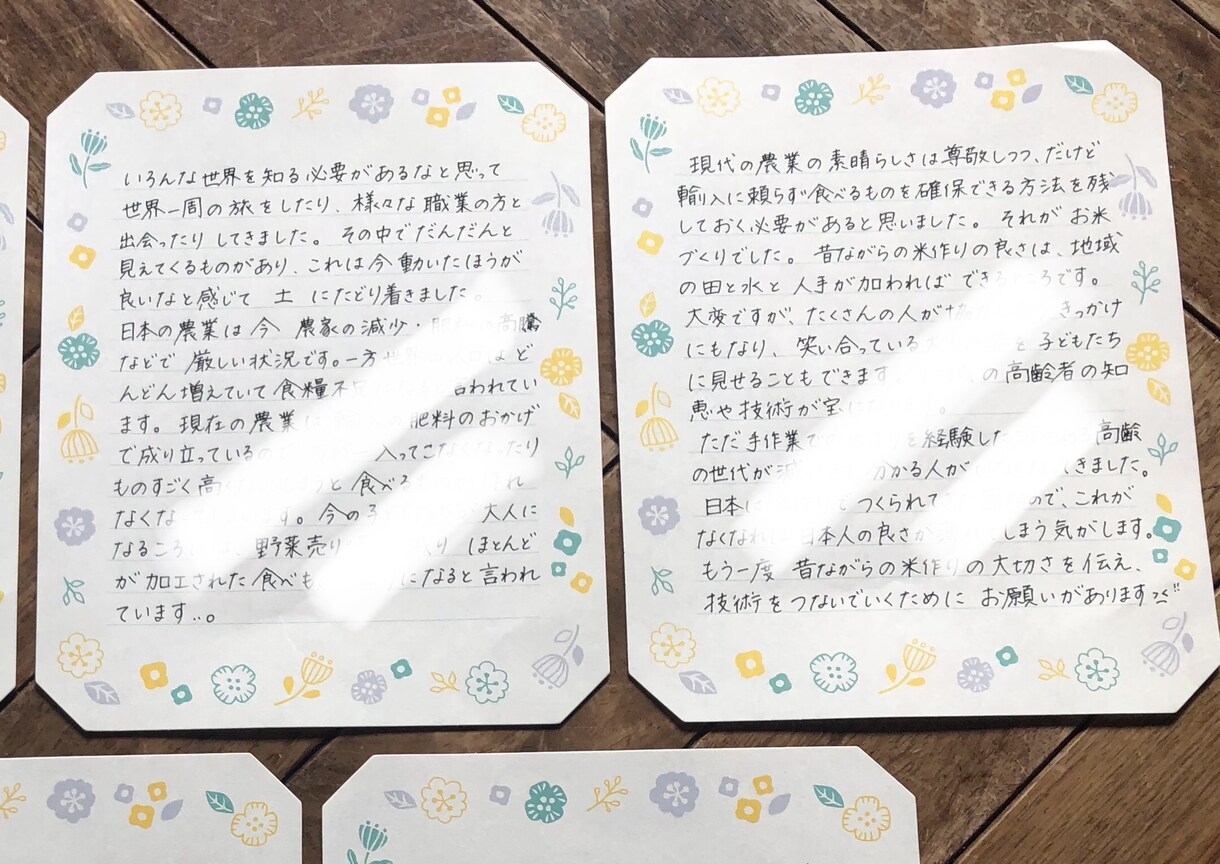 いろんな世界を知る必要があるなと思って
世界一周の旅をしたり、様々な職業の方と
出会ったり してきました。その中でだんだんと
見えてくるものがあり、これは今動いたほうが
良いなと感じて 土 にたどり着きました。
日本の農業は今 農家の減少・ 高騰
などで 厳しい状況です。一方 ど
んどん増えていて食糧不足 言われてい
ます。現在の農業は 肥料のおかげ
で成り立っているので 入ってこなくなったり
ものすごく高く と食べる
なくな す。今の子 大人に
なるころには、野菜売り ほとんど
が加工された食べもの になると言われ
ています..。
現代の農業の素晴らしさは尊敬しつつ、だけど
輸入に頼らず食べるものを確保できる方法を残
しておく必要があると思いました。それがお米
づくりでした。昔ながらの米作りの良さは、地域
の田と水と人手が加わればできるところです。
大変ですが、たくさんの人が きっかけ
にもなり、笑い合っている を子どもたち
に見せることもできます の高齢者の知
恵や技術が宝に
ただ手作業で を経験した 高齢
の世代が 分かる人が きました。
日本に つくられて ので、これが
なくなれば日本人の良さが しまう気がします。
もう一度 昔ながらの米作りの大切さを伝え、
技術をつないでいくために お願いがあります